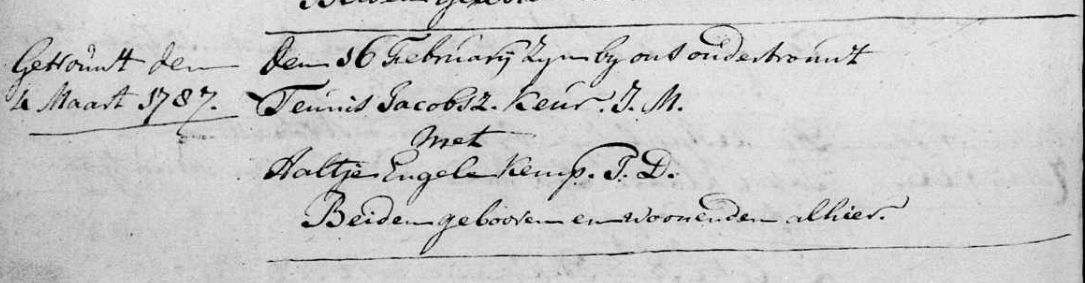 Getrouwt den
4 Maart 1787.
den 16 February Zyn by ons ondertrouwt
Teunis Jacobsz. Keur. J. M.
met
Aaltje Engels Kemp. J. D.
Beiden gebooren en woonenden alhier.